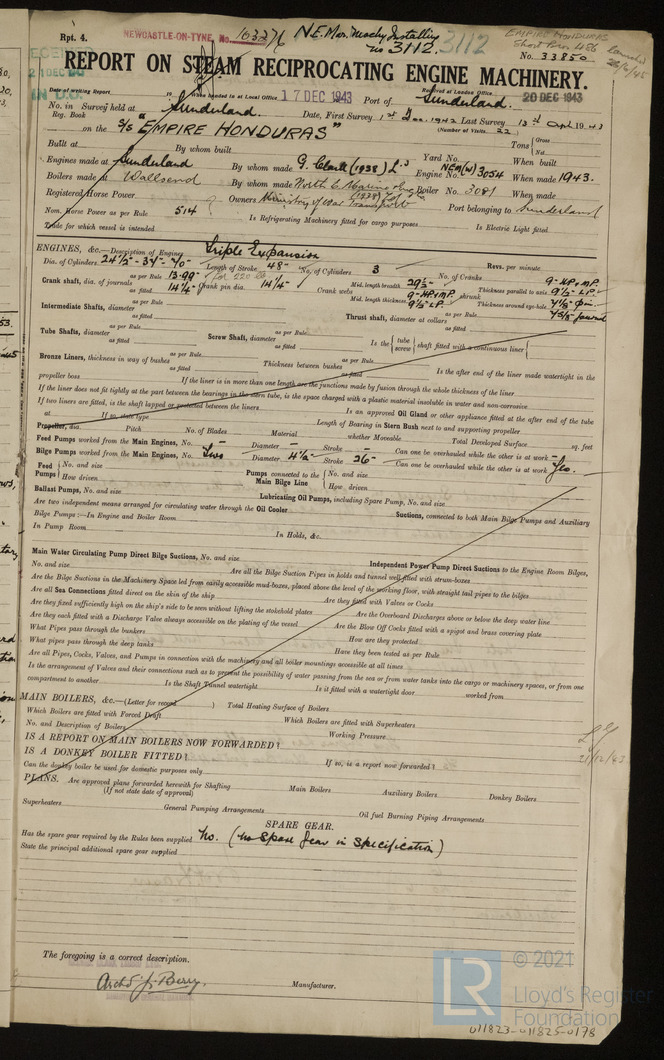 Rpt. 4.
NEWCASTLE-ON-TYNE, No. 103276
NE. Mar. Machy Installing
No 3112. 3112
EMPIRE HONDURAS
Short Bros. 486
No. 33850
REPORT ON STEAM RECIPROCATING ENGINE MACHINERY.
Date of writing Report 19 When handed in at Local Office 17 DEC 1943 Port of Sunderland. Received at London Office 20 DEC 1943
No. in Survey held at Sunderland. Date, First Survey 1st Dec. 1942 Last Survey 13th Apl 1943
Reg. Book (Number of Visits 22)
on the S/S "EMPIRE HONDURAS" Tons { Gross Net
Built at By whom built Yard No. When built
Engines made at Sunderland By whom made G. Clark (1938) Ld Engine No. NEM(W) 3054 When made 1943.
Boilers made at Wallsend By whom made North E. Marine Eng. Co (1938) Ltd Boiler No. 3081 When made
Registered Horse Power Owners Ministry of War Transport Port belonging to Sunderland
Nom. Horse Power as per Rule 514 Is Refrigerating Machinery fitted for cargo purposes Is Electric Light fitted
Trade for which vessel is intended
ENGINES, &c.—Description of Engines Triple Expansion
Dia. of Cylinders 24½ - 39 - 70 Length of Stroke 48 No. of Cylinders 3 No. of Cranks Revs. per minute
Crank shaft, dia. of journals as per Rule 13.99 for 220 lb as fitted 14¼ Crank pin dia. 14¼ Crank webs Mid. length breadth 29½ Mid. length thickness 9-HP & MP. 9½ L.P. shrunk Thickness parallel to axis 9-HP & MP. 9½ L.P. Thickness around eye-hole
Intermediate Shafts, diameter as per Rule as fitted Thrust shaft, diameter at collars as per Rule as fitted
Tube Shafts, diameter as per Rule as fitted Screw Shaft, diameter as per Rule as fitted Is the { tube screw } shaft fitted with a continuous liner {
Bronze Liners, thickness in way of bushes as per Rule as fitted Thickness between bushes as per Rule as fitted Is the after end of the liner made watertight in the
propeller boss If the liner is in more than one length are the junctions made by fusion through the whole thickness of the liner
If the liner does not fit tightly at the part between the bearings in the stern tube, is the space charged with a plastic material insoluble in water and non-corrosive
If two liners are fitted, is the shaft lapped or protected between the liners Is an approved Oil Gland or other appliance fitted at the after end of the tube
shaft If so, state type Length of Bearing in Stern Bush next to and supporting propeller
Propeller, dia. Pitch No. of Blades Material whether Moveable Total Developed Surface sq. feet
Feed Pumps worked from the Main Engines, No. — Diameter — Stroke — Can one be overhauled while the other is at work —
Bilge Pumps worked from the Main Engines, No. Two Diameter 4½ Stroke 26 Can one be overhauled while the other is at work Yes.
Feed Pumps { No. and size How driven Pumps connected to the Main Bilge Line { No. and size How driven
Ballast Pumps, No. and size Lubricating Oil Pumps, including Spare Pump, No. and size
Are two independent means arranged for circulating water through the Oil Cooler Suctions, connected to both Main Bilge Pumps and Auxiliary
Bilge Pumps:—In Engine and Boiler Room
In Pump Room In Holds, &c.
Main Water Circulating Pump Direct Bilge Suctions, No. and size Independent Power Pump Direct Suctions to the Engine Room Bilges,
No. and size Are all the Bilge Suction Pipes in holds and tunnel well fitted with strum-boxes
Are the Bilge Suctions in the Machinery Space led from easily accessible mud-boxes, placed above the level of the working floor, with straight tail pipes to the bilges
Are all Sea Connections fitted direct on the skin of the ship Are they fitted with Valves or Cocks
Are they fixed sufficiently high on the ship's side to be seen without lifting the stokehold plates Are the Overboard Discharges above or below the deep water line
Are they each fitted with a Discharge Valve always accessible on the plating of the vessel Are the Blow Off Cocks fitted with a spigot and brass covering plate
What Pipes pass through the bunkers How are they protected
What pipes pass through the deep tanks Have they been tested as per Rule
Are all Pipes, Cocks, Valves, and Pumps in connection with the machinery and all boiler mountings accessible at all times
Is the arrangement of Valves and their connections such as to prevent the possibility of water passing from the sea or from water tanks into the cargo or machinery spaces, or from one
compartment to another Is the Shaft Tunnel watertight Is it fitted with a watertight door worked from
MAIN BOILERS, &c.—(Letter for record ) Total Heating Surface of Boilers
Which Boilers are fitted with Forced Draft Which Boilers are fitted with Superheaters
No. and Description of Boilers Working Pressure
IS A REPORT ON MAIN BOILERS NOW FORWARDED?
IS A DONKEY BOILER FITTED? If so, is a report now forwarded?
Can the donkey boiler be used for domestic purposes only
PLANS. Are approved plans forwarded herewith for Shafting Main Boilers Auxiliary Boilers Donkey Boilers
(If not state date of approval)
Superheaters General Pumping Arrangements Oil fuel Burning Piping Arrangements
21/12/43
SPARE GEAR.
Has the spare gear required by the Rules been supplied No. (No Spare Gear in Specification)
State the principal additional spare gear supplied
The foregoing is a correct description.
Archd J. Berry. Manufacturer.
LR © 2021
Lloyd's Register
Foundation
011823-011825-0178